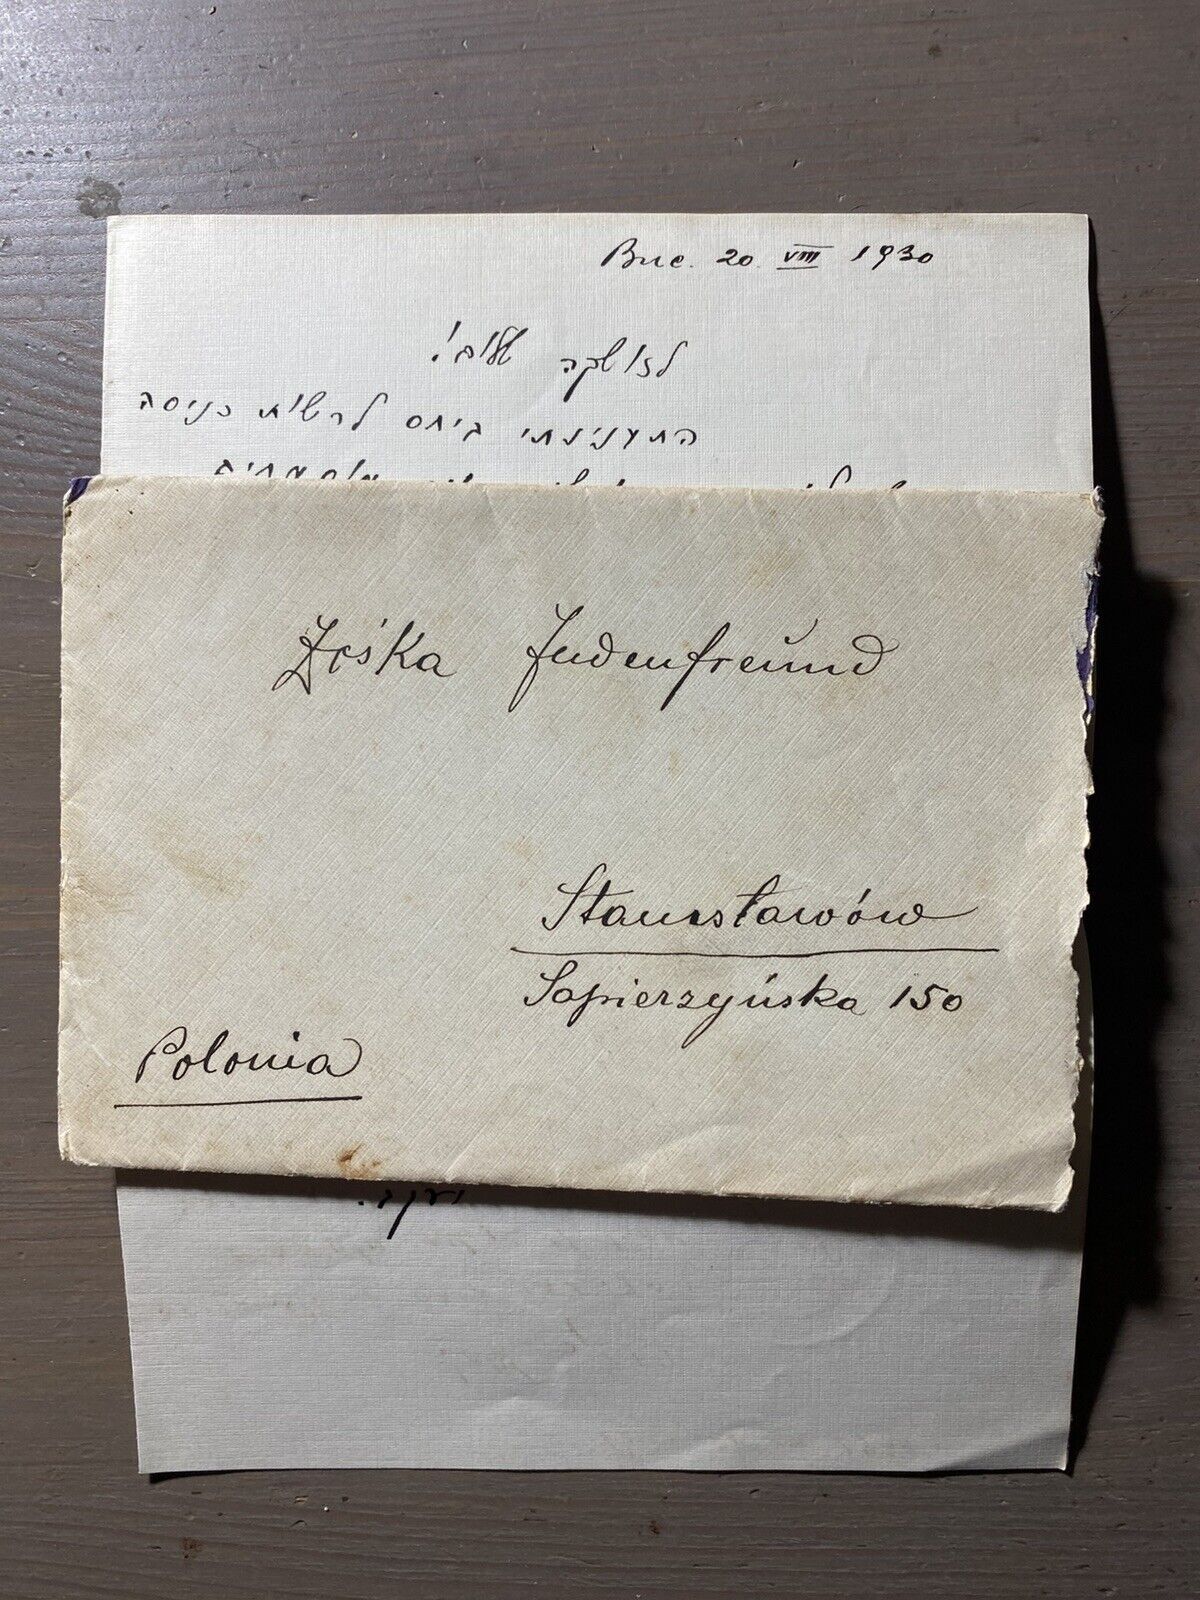 Buc. 20. VIII 1930
לזושקה שלום!
התענינתי ביחס לרשות כניסה
Zośka Judenfreund
Stanisławów
Sapierzyńska 150
Polonia